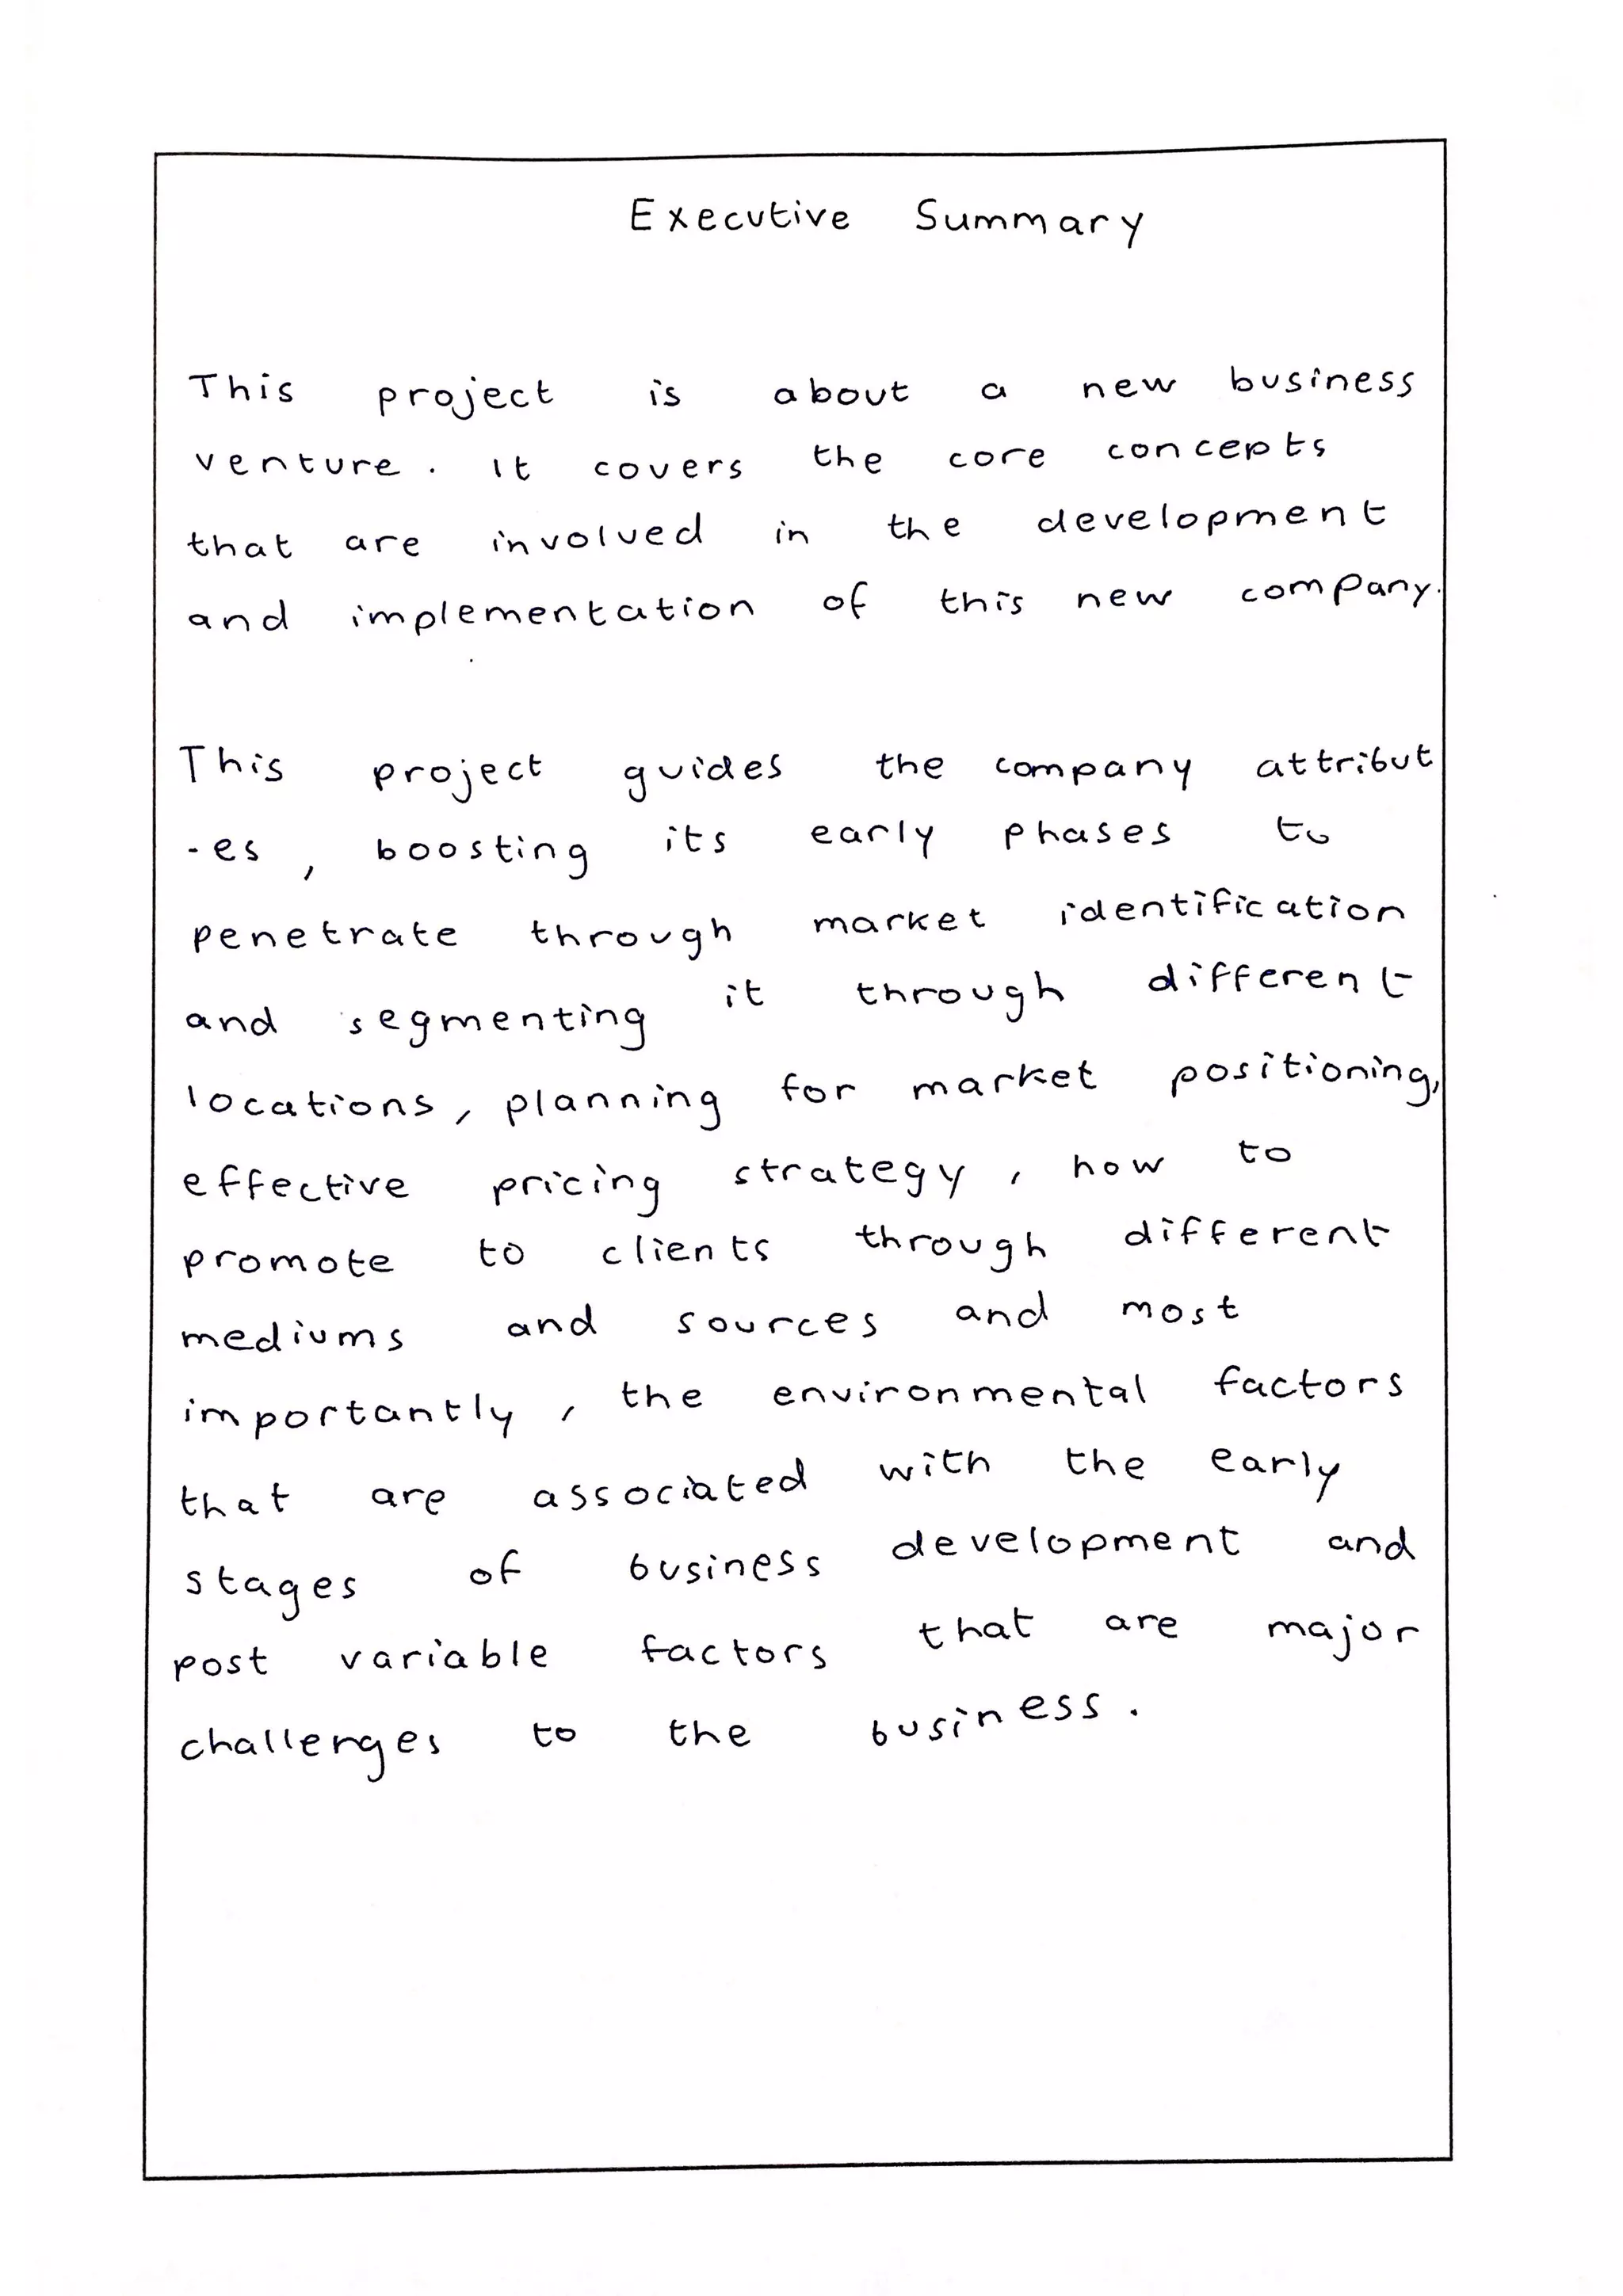 Executive Summary
This project is about a new business
venture. It covers the core concepts
that are involved in the development
and implementation of this new company.
This project guides the company attribut
-es, boosting its early phases to
penetrate through market identification
and segmenting it through different
locations, planning for market positioning,
effective pricing strategy, how to
promote to clients through different
mediums and sources and most
importantly, the environmental factors
that are associated with the early
stages of business development and
post variable factors that are major
challenges to the business.